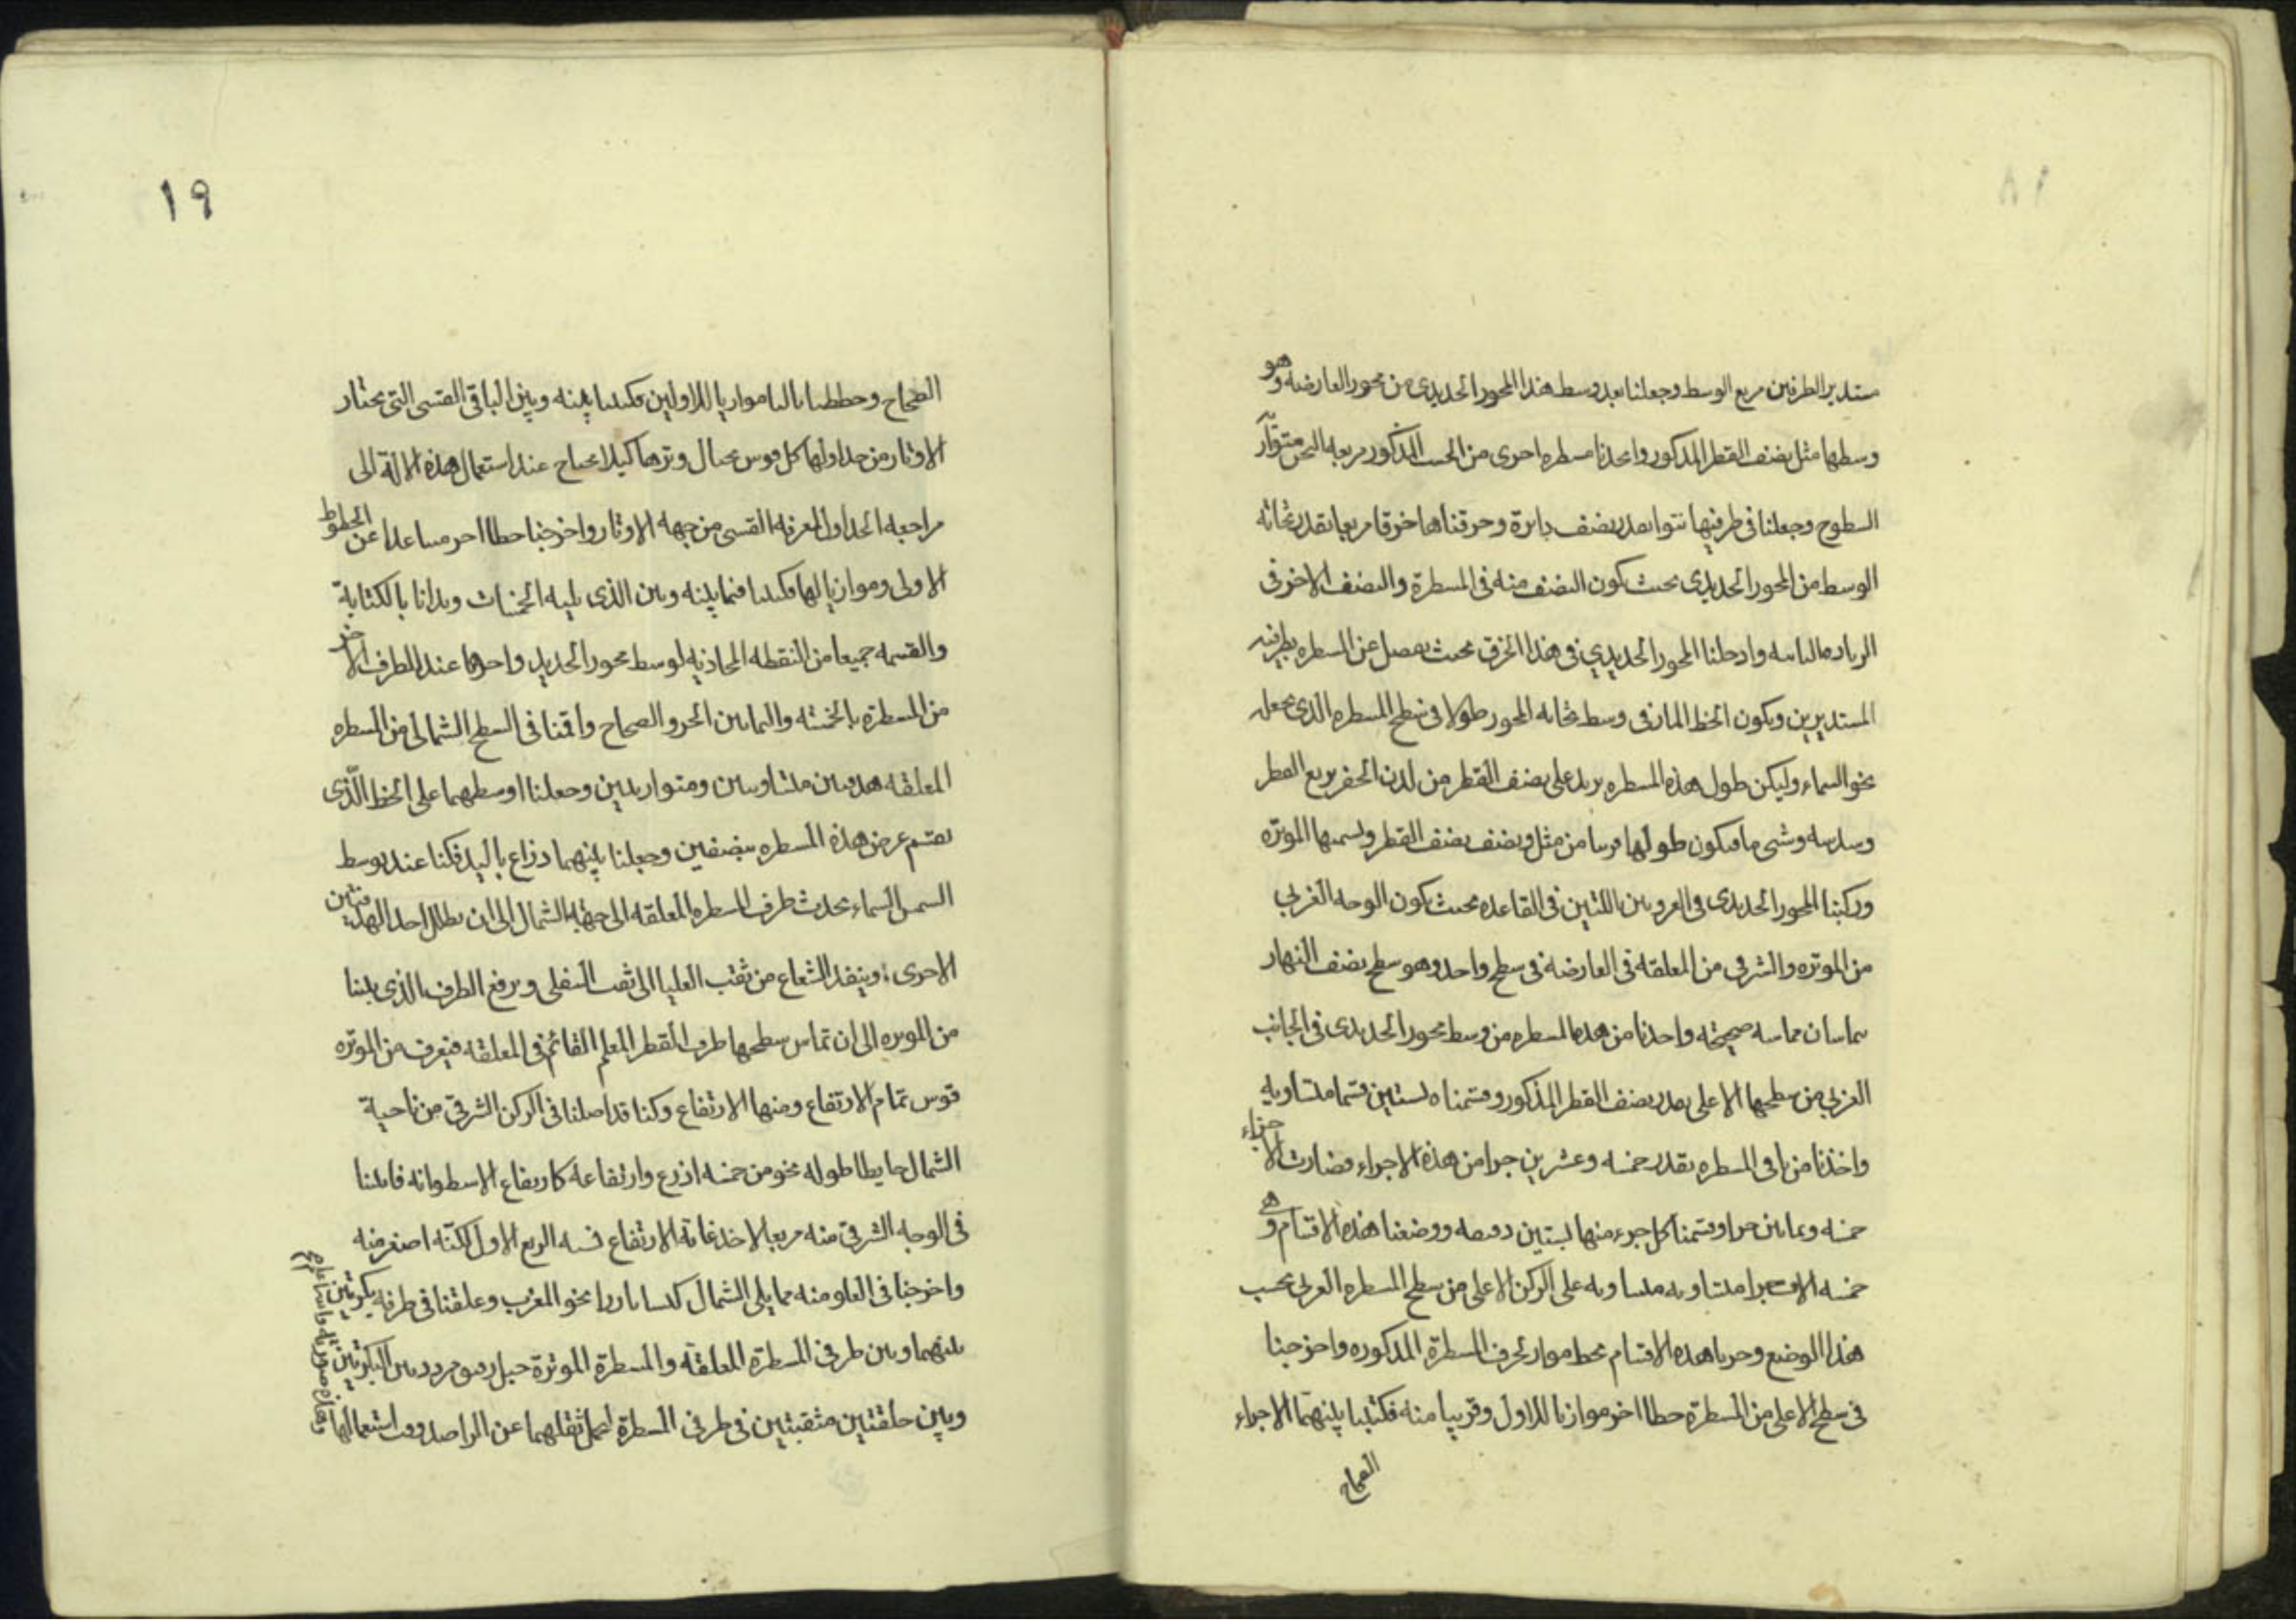 مستدير الطرفين مربع الوسط وجعلنا بعد وسط هذا المحور الحديدي من محور العارضه وهو
وسطها مثل نصف القطر المذكور واتخذنا مسطره اخرى من الخشب المذكور مربعه متوازى
السطوح وجعلنا فى طرفيها نتوا بقدر نصف دايرة وخرقناها خرقا مربعا بقدر ثخانه
الوسط من المحور الحديدى بحيث يكون النصف منه فى المسطرة والنصف الاخر فى
الزياده الناتيه وادخلنا المحور الحديدي فى هذا الخرق بحيث يفصل عن المسطره بطرفيه
المستديرين ويكون الخط المار فى وسط ثخانه المحور طولا فى سطح المسطره الذى يجعل
نحو السماء وليكن طول هذه المسطره يزيد على نصف القطر من لدن الحفر بربع القطر
وسدسه وشى ما فيكون طولها قريبا من مثل ونصف نصف القطر ونسميها الموتره
وركبنا المحور الحديدى فى اللتين فى القاعده بحيث يكون الوجه الغربي
من الموتره والشرقى من المعلقه فى العارضه فى سطح واحد وهو سطح نصف النهار
يتماسان مماسه صحيحة واخذنا من هذه المسطره من وسط محور الحديدى فى الجانب
الغربي من سطحها الاعلى بقدر نصف القطر المذكور وقسمناه بستين قسما متساويه
واخذنا من باقى المسطره بقدر خمسه وعشرين جزا من هذه الاجزاء فصارت الاجزاء
خمسه وثمانين جزا وقسمنا كل جزء منها بستين دقيقه ووضعنا هذه الاقسام وهى
خمسه الاف متساويه على الركن الاعلى من سطح المسطره الغربى بحسب
هذا الوضع وحزنا هذه الاقسام بخط مواز لحرف المسطرة المذكوره واخرجنا
فى سطح الاعلى من المسطرة خطا اخر موازيا للاول وقريبا منه فكتبنا بينهما الاجزاء
الصحاح
١٩
الصحاح وخططنا ثالثا موازيا للاولين فكتبنا بينه وبين الباقى القسى التى تحتار
الاوتار من جداولها كل قوس بحيال وترها كيلا يحتاج عند استعمال هذه الالة الى
مراجعه الجداول لمعرفه القسى من جهه الاوتار واخرجنا خطا اخر متباعدا عن الخطوط
الاولى وموازيا لها فكتبنا فيما بينه وبين الذى يليه الخمسات وبدانا بالكتابة
والقسمه جميعا من النقطه المحاذيه لوسط محور الحديد واخرها عند الطرف الاخر
من المسطرة بالخمسه والثمانين الجزو الصحاح واقمنا فى السطح الشمالى من المسطره
المعلقه هدفتين متساويتين ومتوازيتين وجعلنا اوسطهما على الخط الذى
يقسم عرض هذه المسطره بنصفين وجعلنا بينهما ذراع باليد فكنا عند توسط
الشمس السماء نجذب طرف المسطره المعلقه الى جهة الشمال الى ان يظلل احد الهدفتين
الاخرى وينفذ الشعاع من ثقب العليا الى ثقب السفلى ويرفع الطرف الذى يلينا
من الموتره الى ان تماس سطحها طرف القطر المعلم القائم فى المعلقه فيعرف من الموتره
قوس تمام الارتفاع ومنها الارتفاع وكنا قد اصلنا فى الركن الشرقى من ناحية
الشمال حايطا طوله نحو من خمسه اذرع وارتفاعه كارتفاع الاسطوانه فاثبتنا
فى الوجه الشرقى منه مربعا لاخذ غاية الارتفاع نسبه الربع الاول لكنه اصغر منه
واخرجنا فى العلو منه مما يلى الشمال بارزا نحو المغرب وعلقنا فى طرفه بكرتين
بينهما وبين طرفى المسطرة المعلقه والمسطرة الموترة حبل دقيق مردد بين البكرتين
وبين حلقتين مثقبتين فى طرفى المسطرة ليحمل ثقلهما عن الراصد وقت استعمالها
وهذه صورته